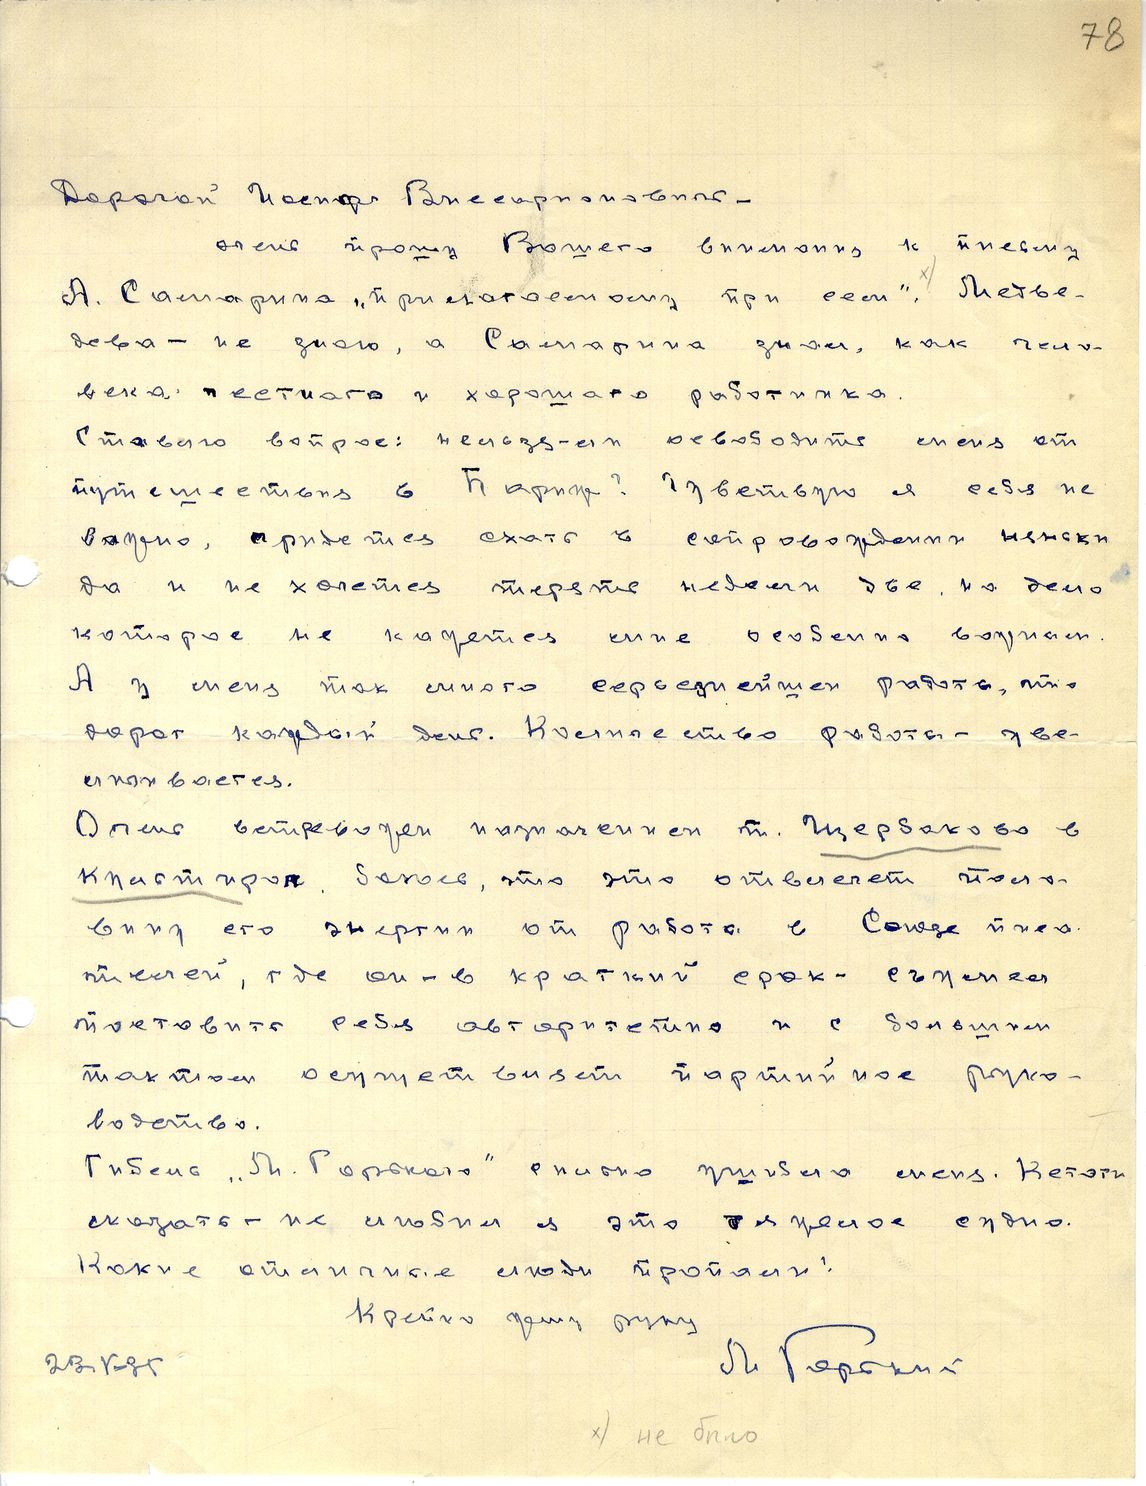 78
Дорогой Иосиф Виссарионович —
очень прошу Вашего внимания к письму
А. Самарина „прилагаемому при сем". х) Медве-
дева — не знаю, а Самарина знаю, как чело-
века честного и хорошего работника.
Ставлю вопрос: нельзя-ли освободить меня от
путешествия в Париж? Чувствую я себя не
важно, придется ехать в сопровождении няньки
да и не хочется терять недели две, на дело
которое не кажется мне особенно важным.
А у меня так много серьезнейшей работы, что
дорог каждый день. Количество работы — уве-
личивается.
Очень встревожен назначением т. Щербакова в
Культпроп, боюсь, что это отвлечет поло-
вину его энергии от работы в Союзе писа-
телей, где он — в краткий срок — съумел
поставить себя авторитетно и с большим
тактом осуществляет партийное руко-
водство.
Гибель „М. Горького" сильно ушибла меня. Кстати
сказать — не любил я это тяжелое судно.
Какие отличные люди пропали!
Крепко жму руку
М Горький
23.V-35
х) не было